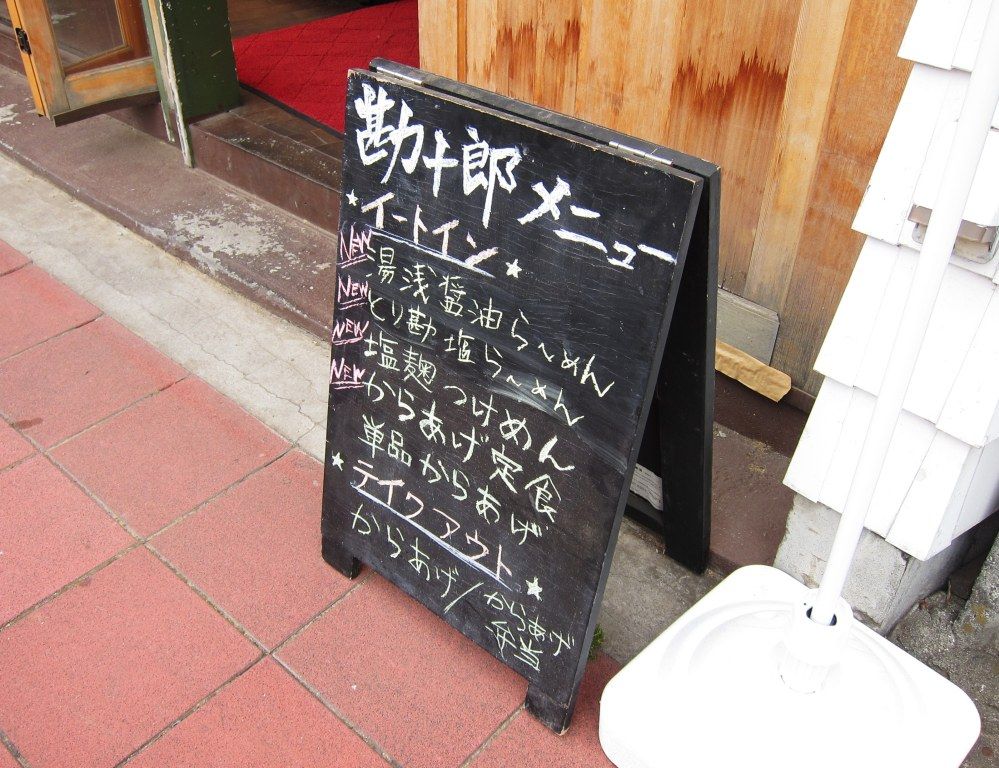 勘十郎 メニュー
★イートイン★
NEW 湯浅醤油ら〜めん
NEW とり勘塩ら〜めん
NEW 塩麹つけめん
NEW からあげ定食
単品からあげ
★テイクアウト★
からあげ/からあげ弁当